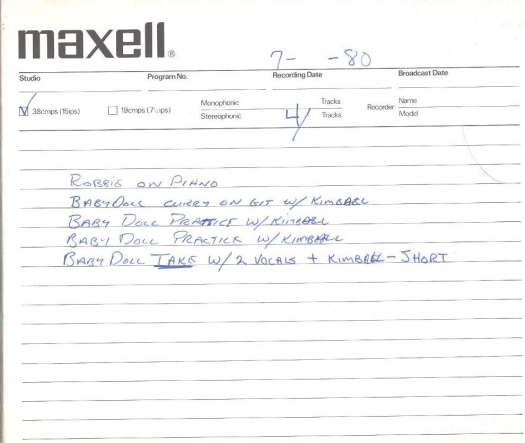 maxell®
7- -80
Studio Program No. Recording Date Broadcast Date
38cmps (15ips) 19cmps (7½ips) Monophonic Tracks Recorder Name
Stereophonic 4 Tracks Model
ROBBIE ON PIANO
BABY DOLL CURRY ON GIT W/ KIMBALL
BABY DOLL PRACTICE W/ KIMBALL
BABY DOLL PRACTICE W/ KIMBALL
BABY DOLL TAKE W/ 2 VOCALS + KIMBALL - SHORT